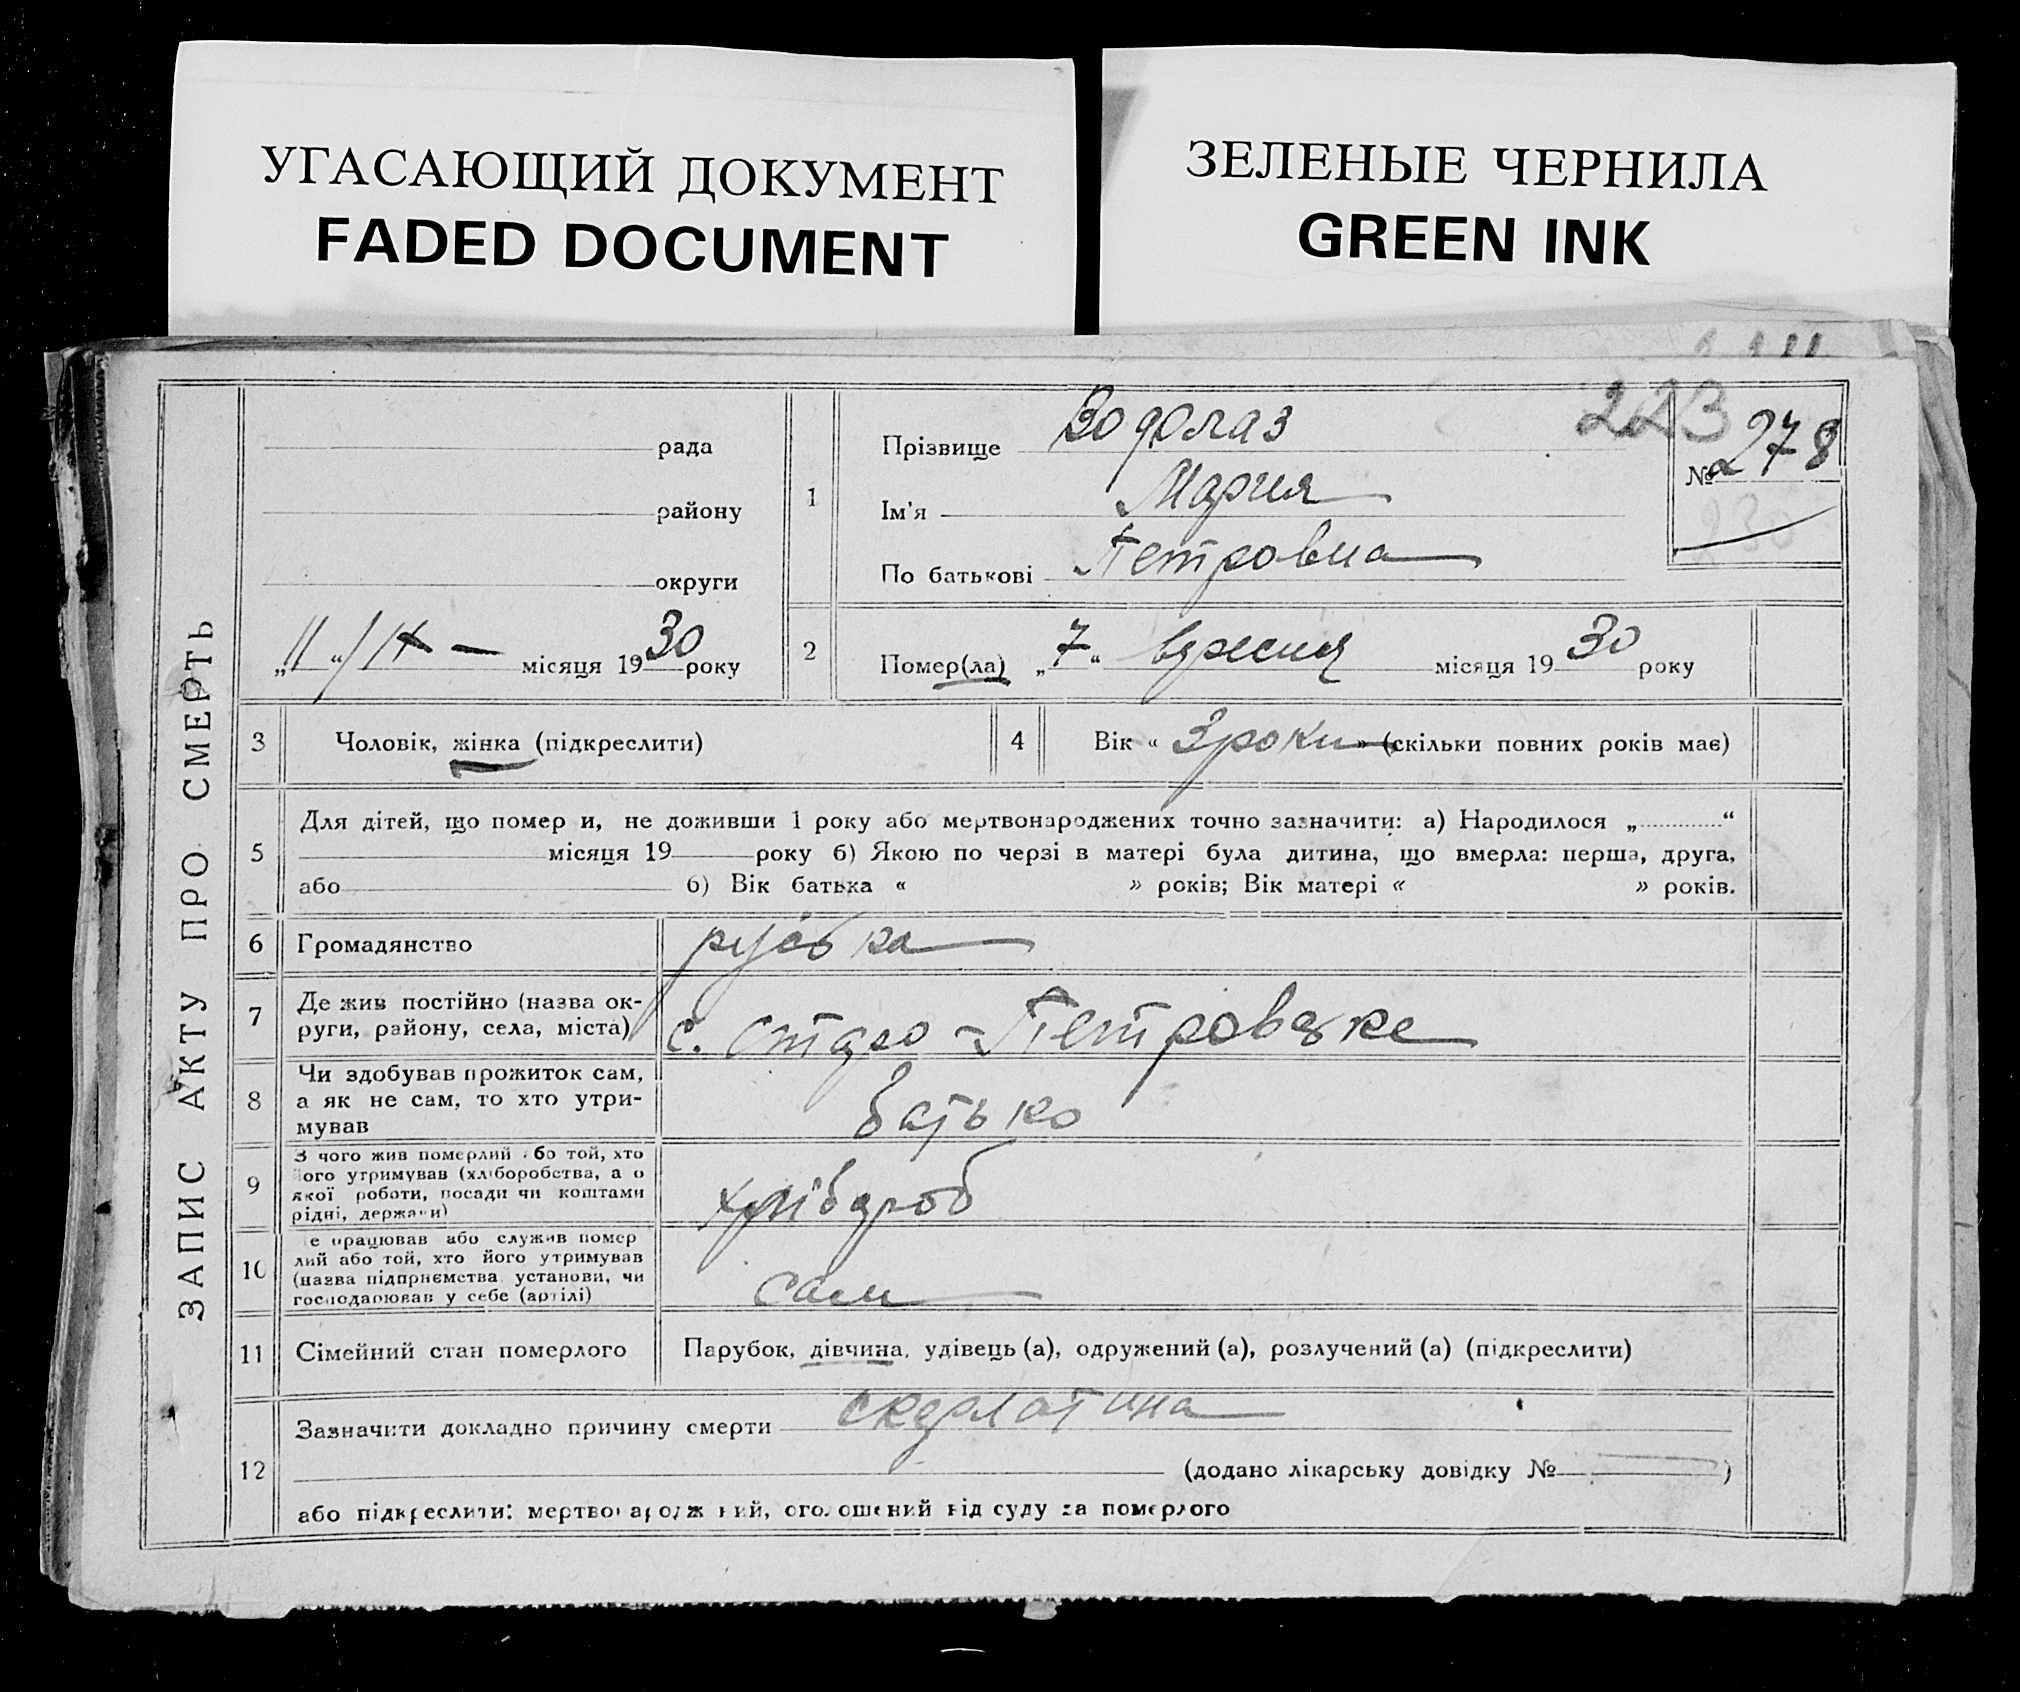 УГАСАЮЩИЙ ДОКУМЕНТ
FADED DOCUMENT
ЗЕЛЕНЫЕ ЧЕРНИЛА
GREEN INK
ЗАПИС АКТУ ПРО СМЕРТЬ
рада
району
округи
„11“/IX — місяця 1930 року
223
№ 278
230
1 Прізвище Водолаз
Ім'я Мария
По батькові Петровна
2 Помер(ла) „7“ вересня місяця 1930 року
3 Чоловік, жінка (підкреслити)
4 Вік «3 роки» (скільки повних років має)
5 Для дітей, що померли, не доживши 1 року або мертвонароджених точно зазначити: а) Народилося „ “
місяця 19 року б) Якою по черзі в матері була дитина, що вмерла: перша, друга,
або б) Вік батька « » років; Вік матері « » років.
6 Громадянство руська
7 Де жив постійно (назва ок-
руги, району, села, міста)
с. Старо-Петровске
8 Чи здобував прожиток сам,
а як не сам, то хто утри-
мував
батько
9 З чого жив померлий або той, хто
його утримував (хліборобства, а о
якої роботи, посади чи коштами
рідні, держави)
хлібороб
10 Де працював або служив помер
лий або той, хто його утримував
(назва підприємства установи, чи
господарював у себе (артілі)
сам
11 Сімейний стан померлого Парубок, дівчина, удівець (а), одружений (а), розлучений (а) (підкреслити)
12 Зазначити докладно причину смерти скарлатина
(додано лікарську довідку № )
або підкреслити: мертвонароджений, оголошений від суду за померлого